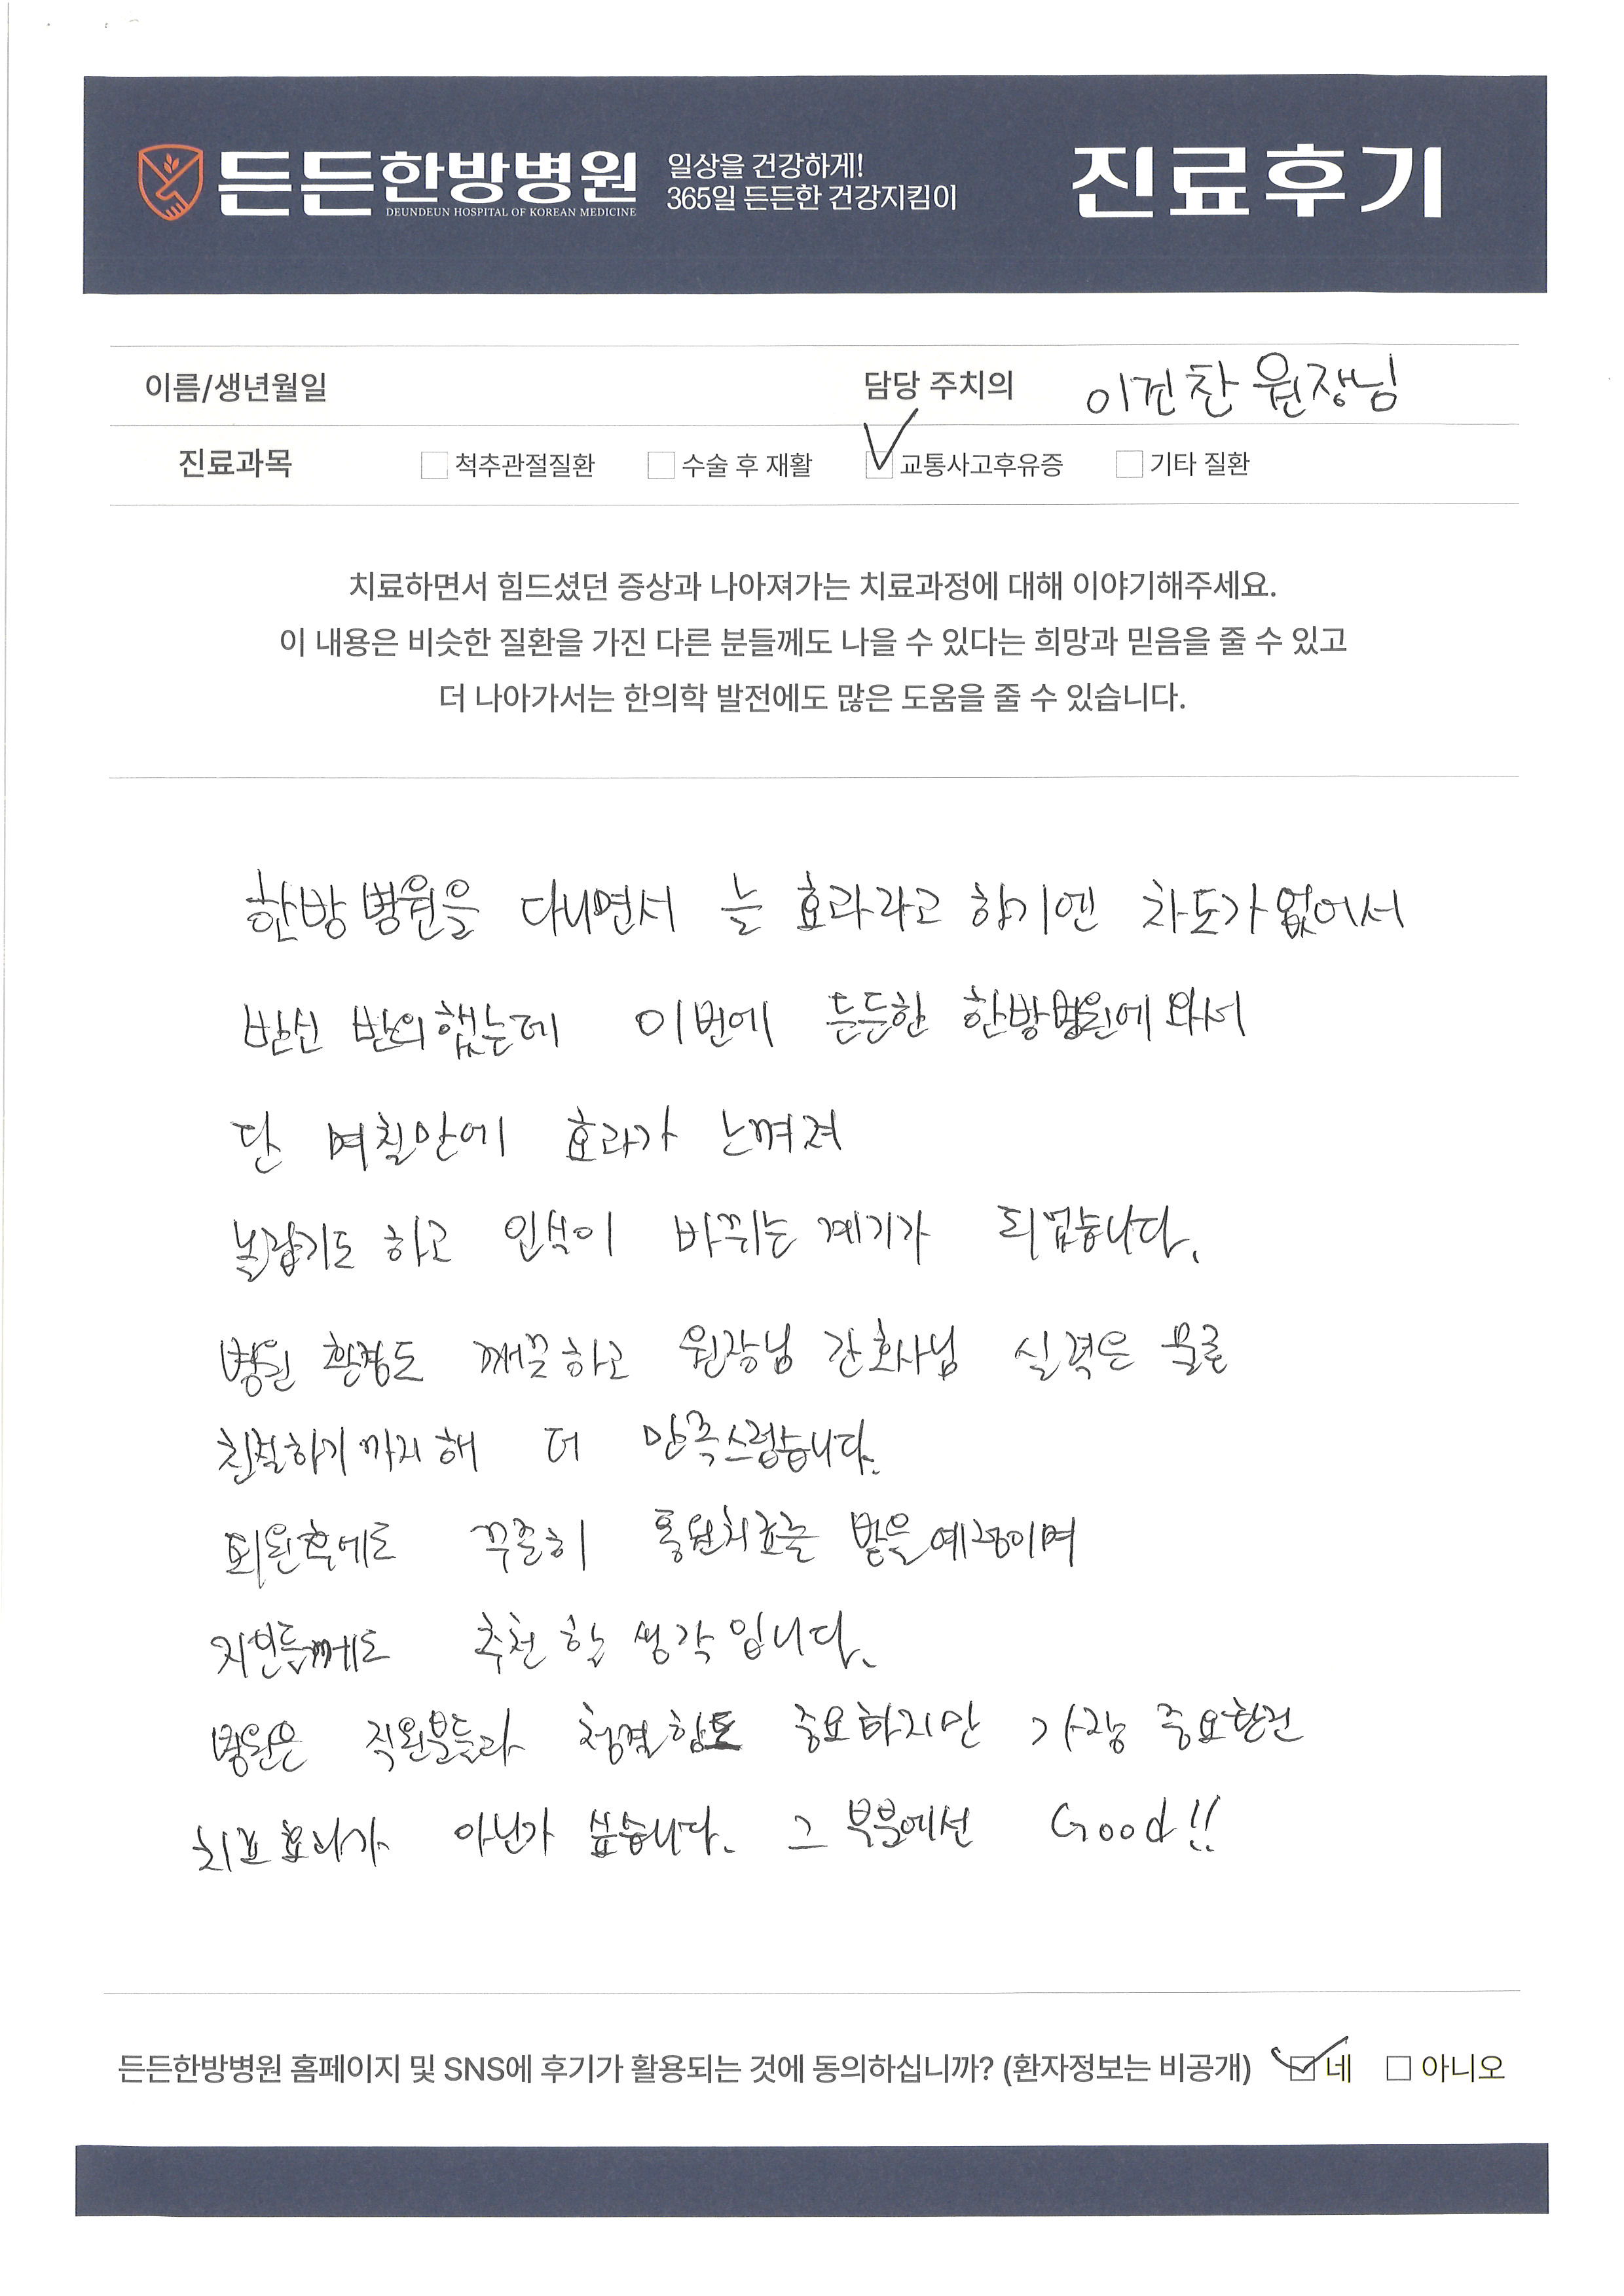 든든한방병원
DEUNDEUN HOSPITAL OF KOREAN MEDICINE
일상을 건강하게!
365일 든든한 건강지킴이
진료후기
이름/생년월일 담당 주치의 이건찬 원장님
진료과목 척추관절질환 수술 후 재활 교통사고후유증 기타 질환
치료하면서 힘드셨던 증상과 나아져가는 치료과정에 대해 이야기해주세요.
이 내용은 비슷한 질환을 가진 다른 분들께도 나을 수 있다는 희망과 믿음을 줄 수 있고
더 나아가서는 한의학 발전에도 많은 도움을 줄 수 있습니다.
한방병원을 다니면서 늘 효과라고 하기엔 차도가 없어서
반신 반의했는데 이번에 든든한 한방병원에 와서
단 며칠만에 효과가 느껴져
놀랍기도 하고 인식이 바뀌는 계기가 되었습니다.
병원 환경도 깨끗하고 원장님 간호사님 실력은 물론
친절하기까지해 더 만족스럽습니다.
퇴원후에도 꾸준히 통원치료를 받을예정이며
지인들께도 추천할 생각입니다.
병원은 직원분들과 청결함도 중요하지만 가장 중요한건
치료효과가 아닌가 싶습니다. 그 부분에선 Good!!
든든한방병원 홈페이지 및 SNS에 후기가 활용되는 것에 동의하십니까? (환자정보는 비공개) 네 아니오